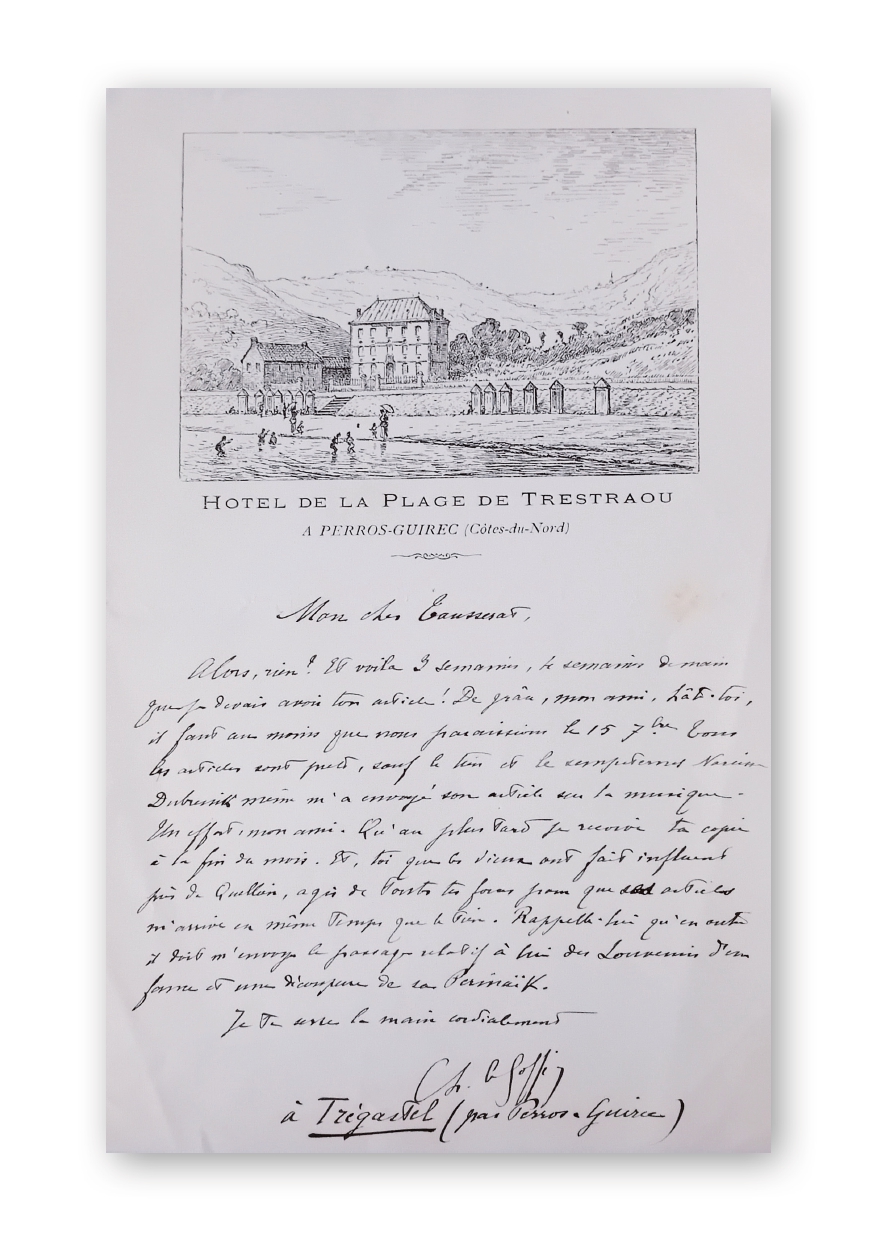 HOTEL DE LA PLAGE DE TRESTRAOU
A PERROS-GUIREC (Côtes-du-Nord)
Mon cher Tausserat,
Alors, rien? Et voila 3 semaines, 4 semaines demain
que je devais avoir ton article! De grâce, mon ami, hâte-toi,
il faut au moins que nous paraissions le 15 7bre Tous
les articles sont prêts, sauf le tien et le sempiternel
Dubreuilh même m'a envoyé son article sur la musique.
Un effort, mon ami. Qu'au plus tard je reçoive ta copie
à la fin du mois. Et, toi que les dieux ont fait influent
près de Quellien, agis de toutes tes forces pour que articles
m'arrive en même temps que le tien. Rappelle-lui qu'en outre
il doit m'envoyer le passage relatif à lui des Souvenirs d'en
fance et une découpure de sa Perinaïk.
Je te serre la main cordialement
Ch. le Goffic
à Trégastel (par Perros-Guirec)